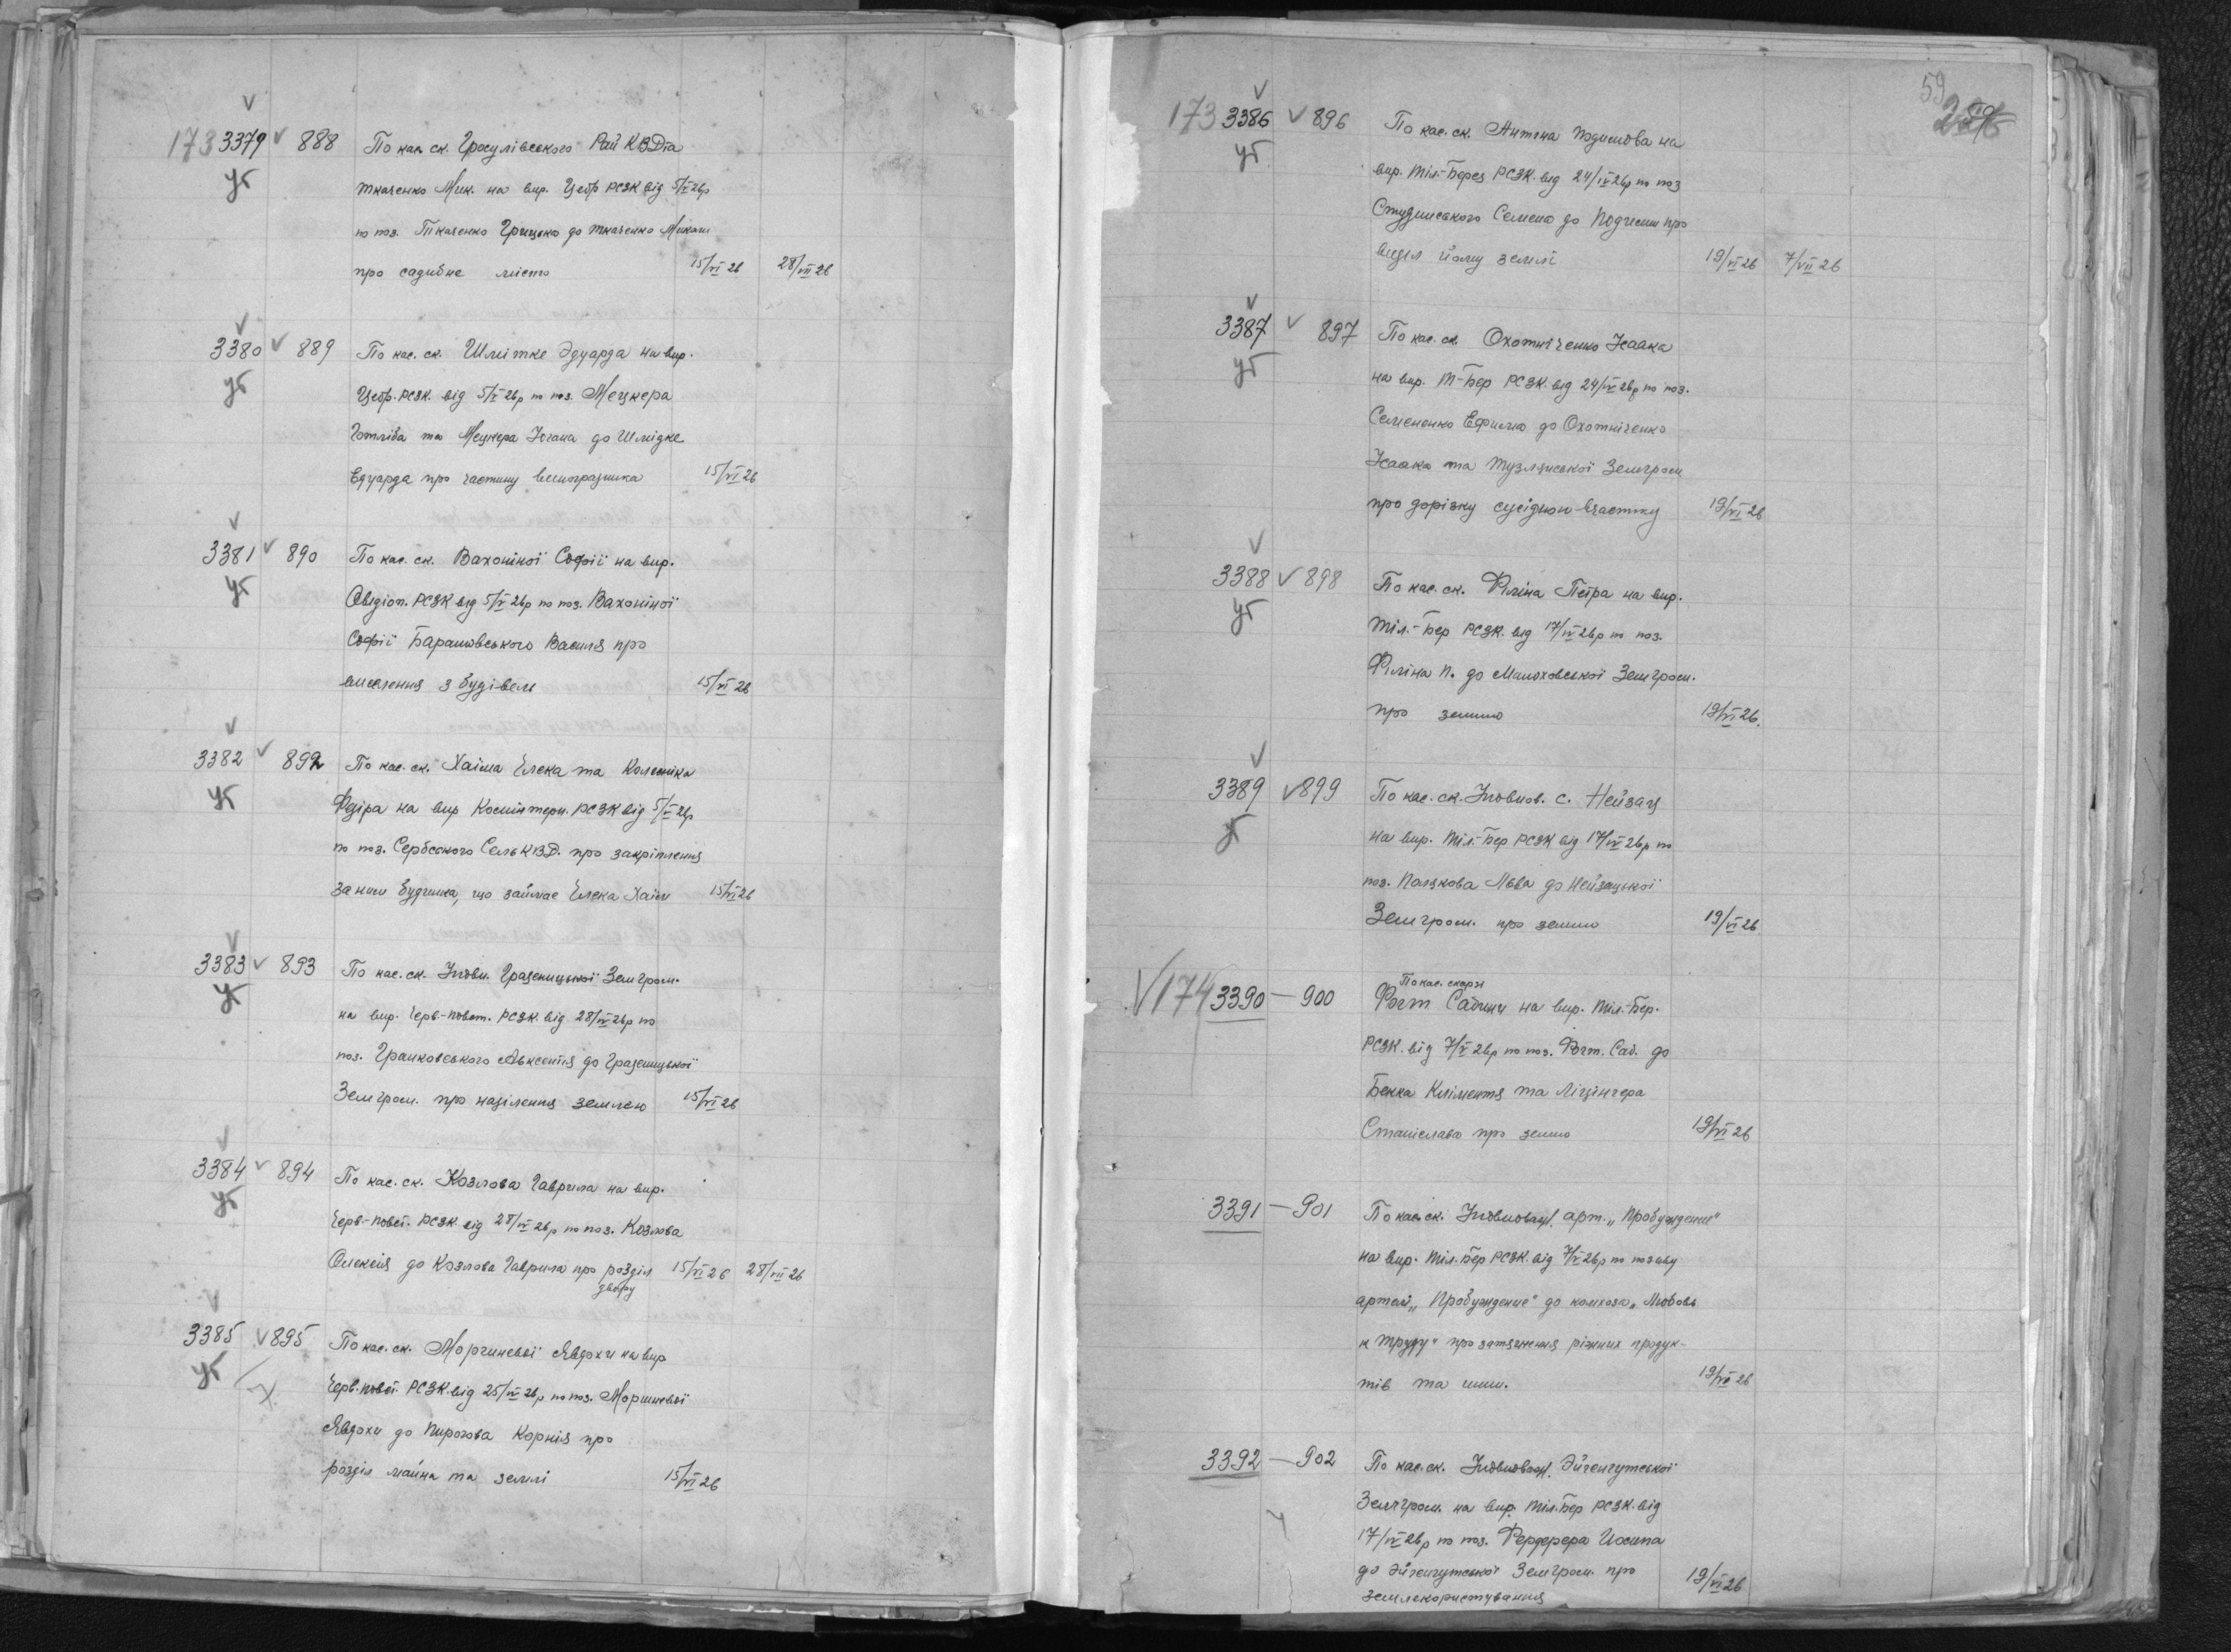 173 3379 888 По кас. ск. Гросулівського Рай КВД та
ткаченко Мик. на вир. Цебр РСЗК від 5/V 26р
по поз. Ткаченко Грицька до ткаченко Миколи
про садибне місто 15/VI 26 28/VII 26
УГ
3380 889 По кас. ск. Шмітке Эдуарда на вир.
Цебр. РСЗК. від 5/V 26р по поз. Мецкера
Готліба та Мецкера Йогана до Шмідке
Едуарда про частину виноградника 15/VI 26
УГ
3381 890 По кас. ск. Вахоніної Софії на вир.
Овідіоп. РСЗК від 5/V 26р по поз. Вахоніної
Софії Барановського Василя про
виселення з будівель 15/VI 26
УГ
3382 892 По кас. ск. Хаіма Елека та Колесніка
на вир Комінтерн. РСЗК від 5/V 26р
по поз. Сербського СельКВД. про закріплення
за ним будинка, що займає Елека Хаім 15/VI 26
УГ
3383 893 По кас. ск. Градениської Земгром.
на вир. Черв-повст. РСЗК. від 28/IV 26р по
поз. Гранковського Авксентія до Граденицької
Земгром. про наділення землею 15/VI 26
УГ
3384 894 По кас. ск. Козлова Гаврила на вир.
Черв-повст. РСЗК. від 28/IV 26р по поз. Козлова
Олексія до Козлова Гаврила про розділ 15/VI 26 28/VII 26
двору
УГ
3385 895 По кас. ск. Моргуневої Явдохи на вир
Черв.повст. РСЗК від 25/IV 26р по поз. Моргуневої
Явдохи до Пирогова Корнія про
розділ майна та землі 15/VI 26
УГ
59
173 3386 896 По кас. ск. Антона на
вир. Тіл.-Берез РСЗК. від 24/IV 26р по поз
Студинського Семена до про
виділ йому землі 19/VI 26 7/VII 26
УГ
3387 897 По кас. ск. Охотніченко Ісаака
на вир. Т-Бер РСЗК. від 24/IV 26р по поз.
Семененко Ефима до Охотніченко
Ісаака та Тузлянської Земгром
про дорізку сусіднои вчастку 19/VI 26
УГ
3388 898 По кас. ск. Філіна Петра на вир.
Тіл.-Бер РСЗК. від 17/IV 26р по поз.
Філіна П. до Малоховської Земгром.
про землю 19/VI 26.
УГ
3389 899 По кас. ск. с. Нейзац
на вир. Тіл.-Бер РСЗК від 17/IV 26р по
поз. Палзкова Льва до Нейзацької
Земгром. про землю 19/VI 26
УГ
174 3390 — 900 По кас. скарзі
Фогт Сабини на вир. Тіл.-Бер.
РСЗК. від 7/V 26р по поз. Фогт. Саб. до
Бекка Клімента та Ліцінгера
Станіслава про землю 19/VI 26
3391 — 901 По кас. ск. арт. „Пробуждение"
на вир. Тіл.-Бер РСЗК. від 7/V 26р по позову
артелі „Пробуждение" до колхоза „Любовь
к труду" про затягнення ріжних продук-
тів та инш. 19/VI 26
3392 — 902 По кас. ск. Эйгенгутської
Земгром. на вир. Тіл.Бер РСЗК. від
17/IV 26р по поз. Фердерера Иосипа
до Эйгенгутської Земгром. про 19/VI 26
землекористування